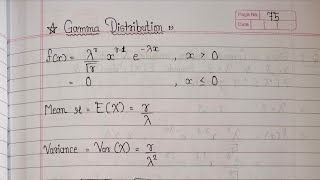 Page No. 75
Date
☆ Gamma Distribution »
f(x) = λ^r/Γr x^(r-1) e^(-λx) , x > 0
= 0 , x ≤ 0
Mean μ = E(X) = r/λ
Variance = Var(X) = r/λ²